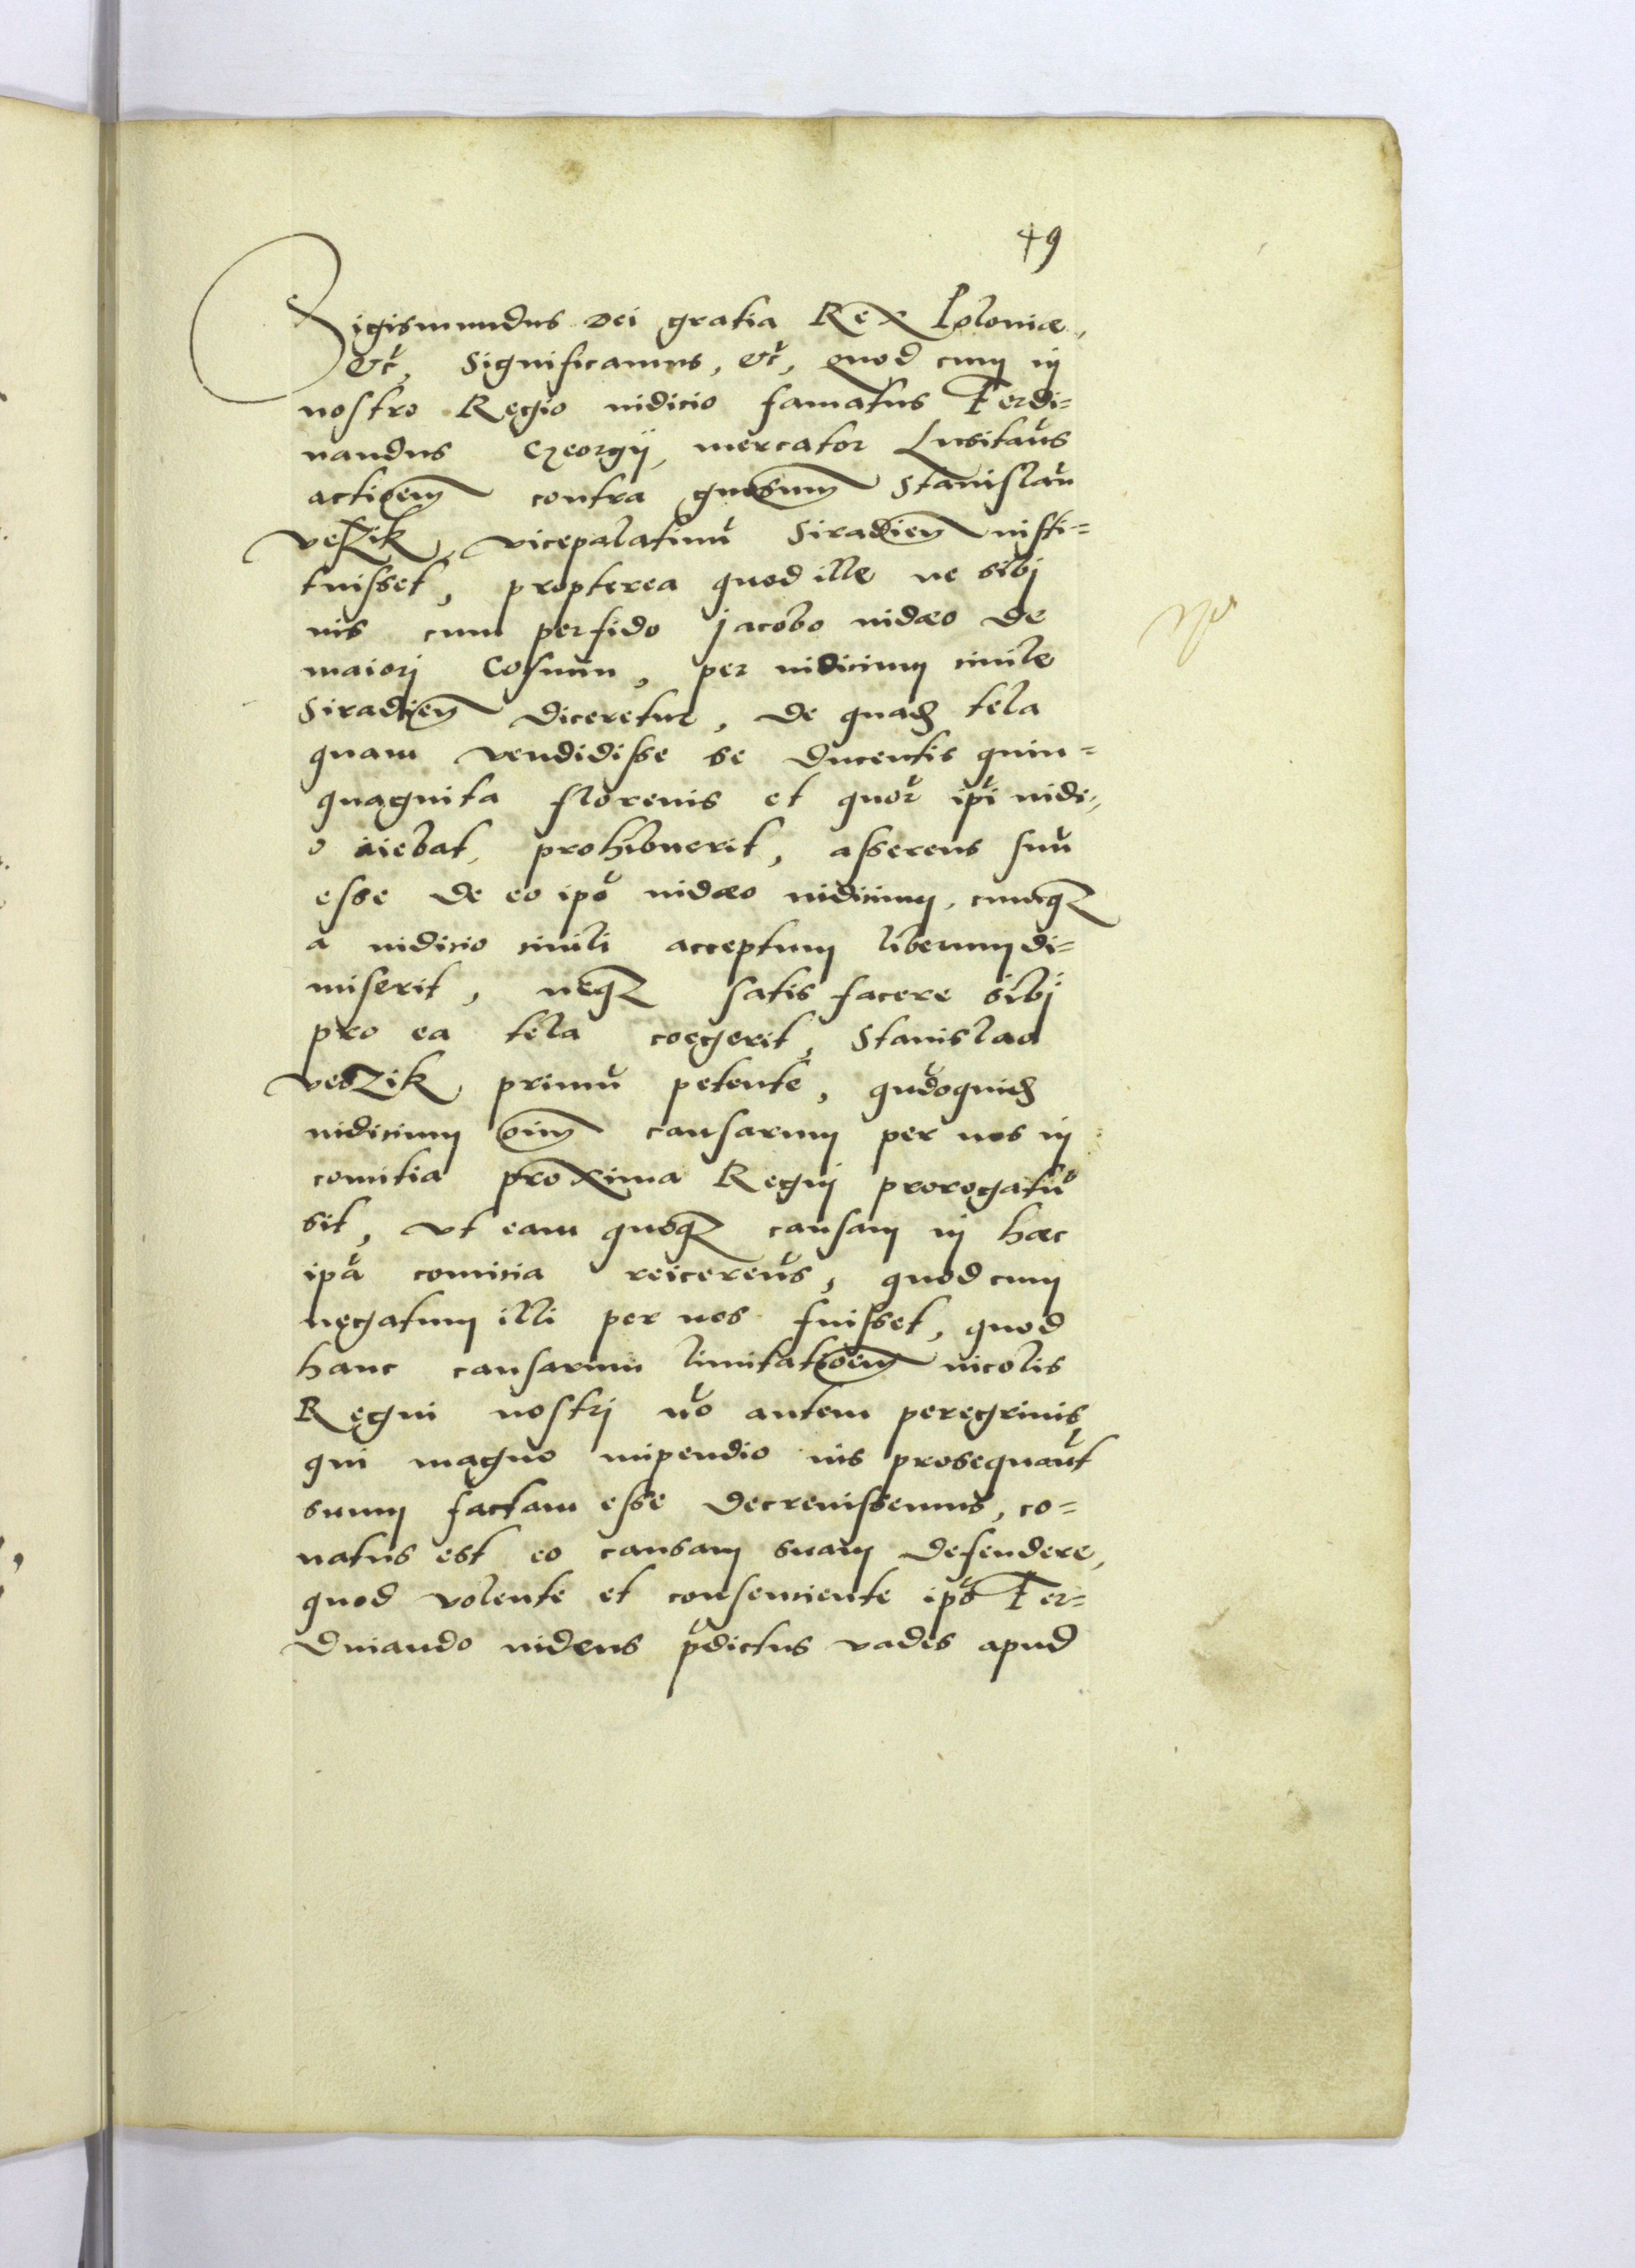 49
Sigismundus Dei gratia Rex Poloniæ,
etc̃, Significamus, etc̃, quod cum in
nostro Regio iudicio famatus Ferdi=
nandus Georgÿ, mercator Lusitan̄s
actioem̄ contra gn̄osum Stanislaū
veSzik, vicepalatinū Siradien̄ insti=
tuisset, propterea quod ille ne sibj
ius cum perfido Jacobo iudæo de
maiorj Cosmin, per iudicium ciuile
Siradien̄ diceretur, de quadꝫ tela
quam vendidisse se ducentis quin=
quaginta florenis et quor̄ ip̄i iude=
o aiebat, prohibuerit, asserens suū
esse de eo ip̄o iudæo iudicium, eumqꝫ
a iudicio ciuili acceptum liberum di=
miserit, neqꝫ satis facere sibj
pro ea tela coegerit, Stanislao
veSzik primū petente, qūdoquidꝫ
iudicium oim̄ causarum per nos in
comitia proxima Regnj prorogatū
sit, vt eam quoqꝫ causam in hæc
ip̄a comicia reicerem̄s, quod cum
negatum illi per nos fuisset, quod
hanc causarum limitatioem̄ incolis
Regni nostrj nō autem peregrinis,
qui magno impendio ius prosequant̄
suum factam esse decreuissemus, co=
natus est eo causam suam defendere,
quod volente et consenciente ip̄o Fer=
dinando iudæus p̄dictus vades apud